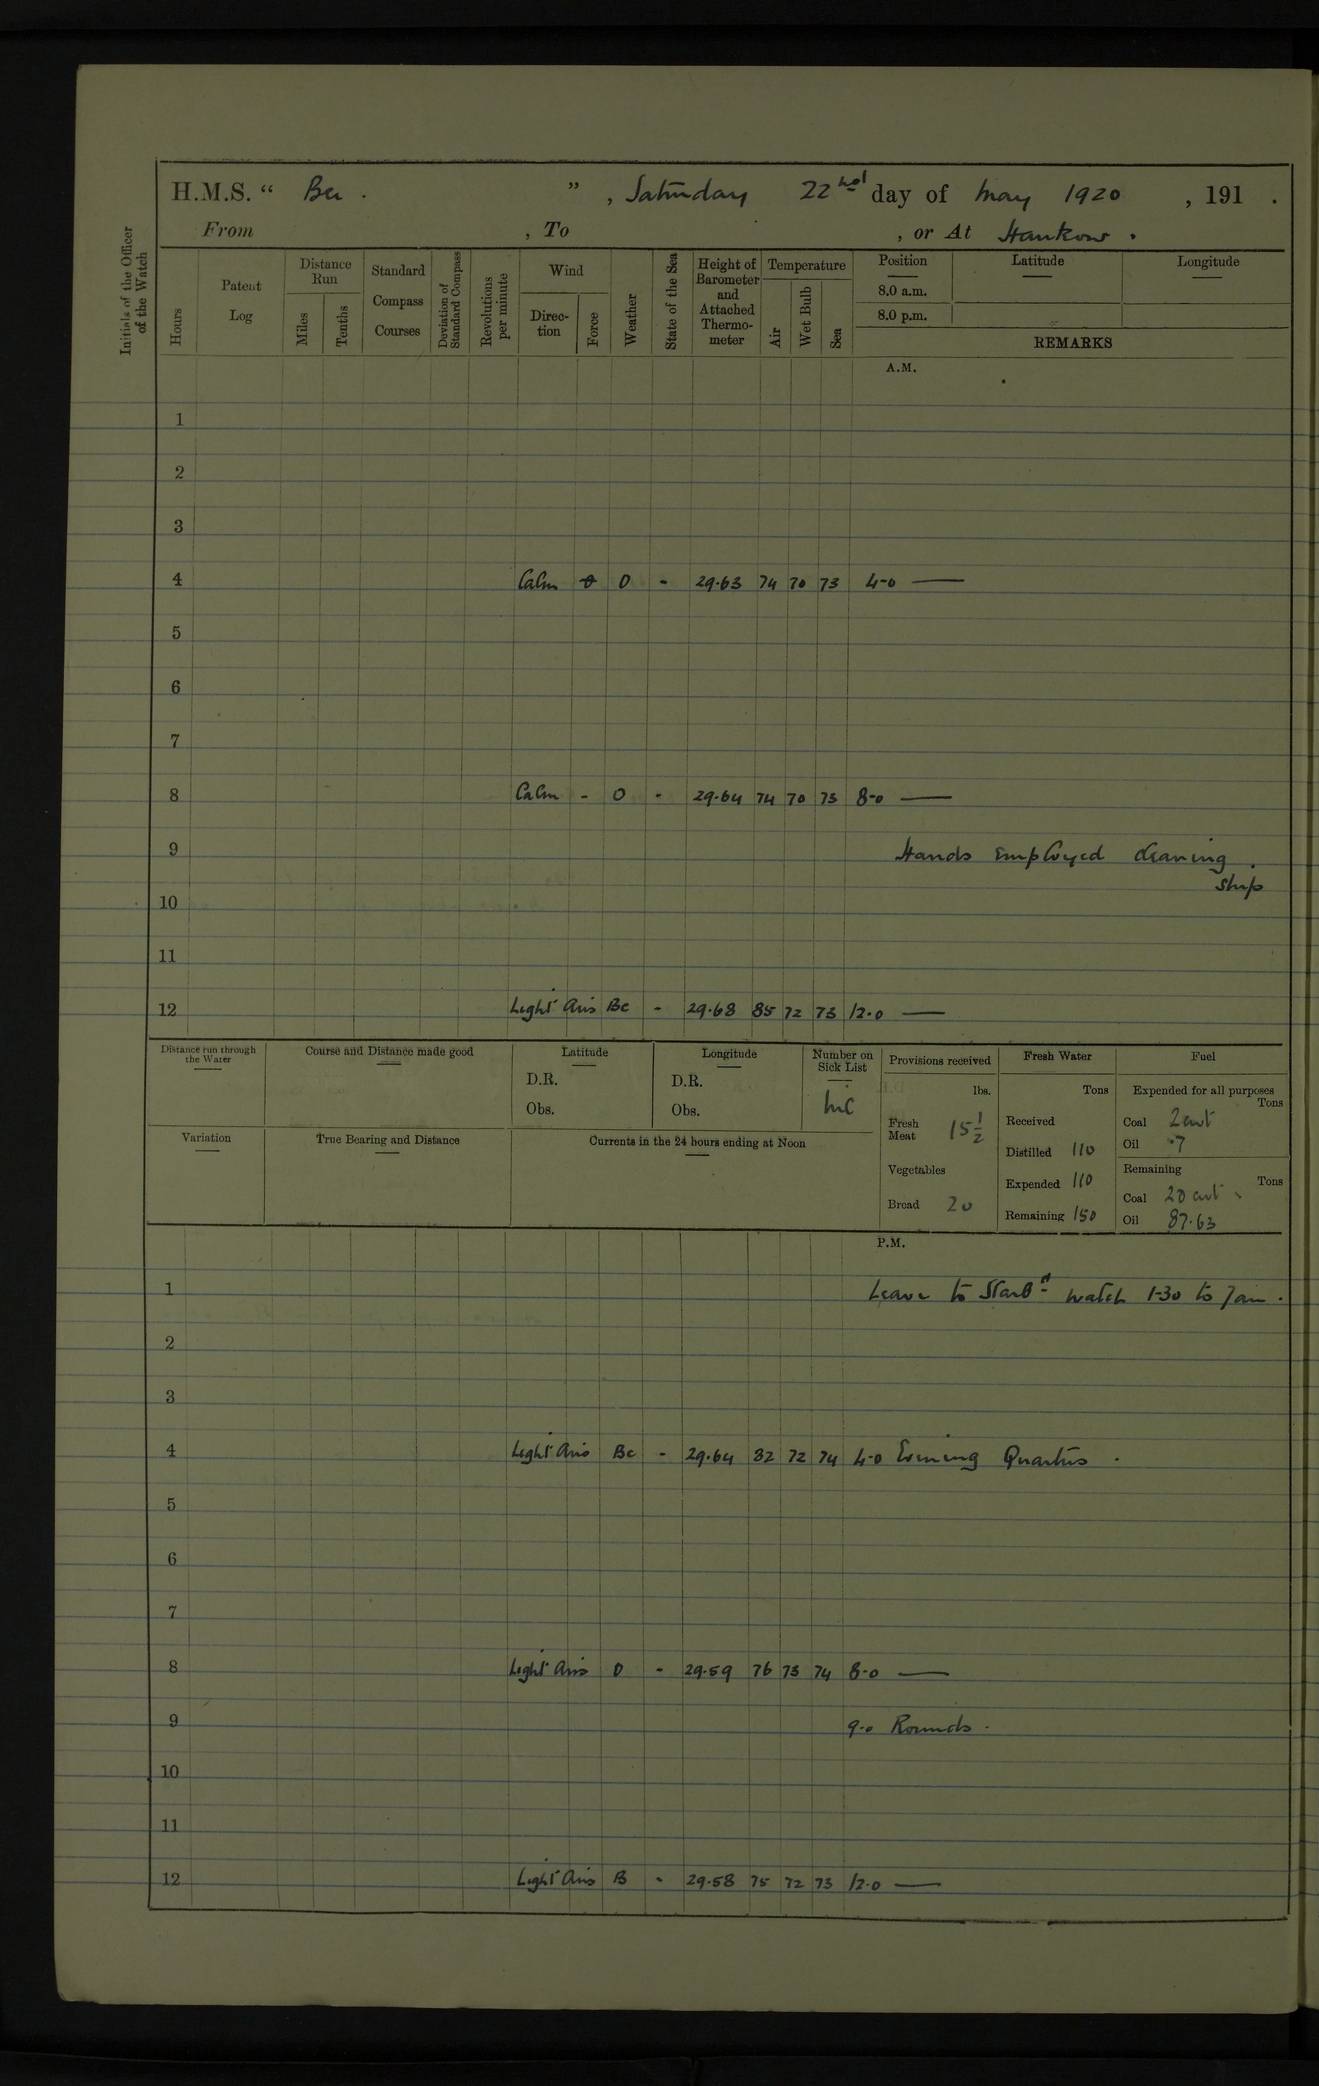 H.M.S. “ Bee . ” , Saturday 22nd day of May 1920 , 191 .
From , To , or At Hankow .
Initials of the Officer of the Watch
Hours
Patent Log
Distance Run
Miles
Tenths
Standard Compass Courses
Deviation of Standard Compass
Revolutions per minute
Wind
Direction
Force
Weather
State of the Sea
Height of Barometer and Attached Thermometer
Temperature
Air
Wet Bulb
Sea
Position
8.0 a.m.
8.0 p.m.
Latitude
Longitude
REMARKS
A.M.
1
2
3
4 Calm 0 O - 29.63 74 70 73 4-0 —
5
6
7
8 Calm - O - 29.64 74 70 73 8-0 —
9 Hands employed cleaning
ship
10
11
12 Light Airs Bc - 29.68 85 72 73 12.0 —
Distance run through the Water
Course and Distance made good
Latitude
D.R.
Obs.
Longitude
D.R.
Obs.
Number on Sick List
nil
Variation
True Bearing and Distance
Currents in the 24 hours ending at Noon
Provisions received
lbs.
Fresh Meat 15 1/2
Vegetables
Bread 20
Fresh Water
Tons
Received
Distilled 110
Expended 110
Remaining 150
Fuel
Expended for all purposes
Tons
Coal 2 cwt
Oil .7
Remaining
Tons
Coal 28 cwt
Oil 87.63
P.M.
1 Leave to Starbd watch 1-30 to 7am .
2
3
4 Light Airs Bc - 29.64 82 72 74 4-0 Evening Quarters .
5
6
7
8 Light Airs O - 29.59 76 73 74 8-0 —
9 9-0 Rounds .
10
11
12 Light Airs B - 29.58 75 72 73 12.0 —